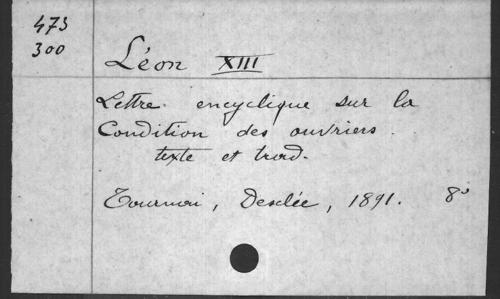 473
300
Léon XIII
Lettre encyclique sur la
Condition des ouvriers.
texte et trad.
Tournai, Desclée, 1891. 8°